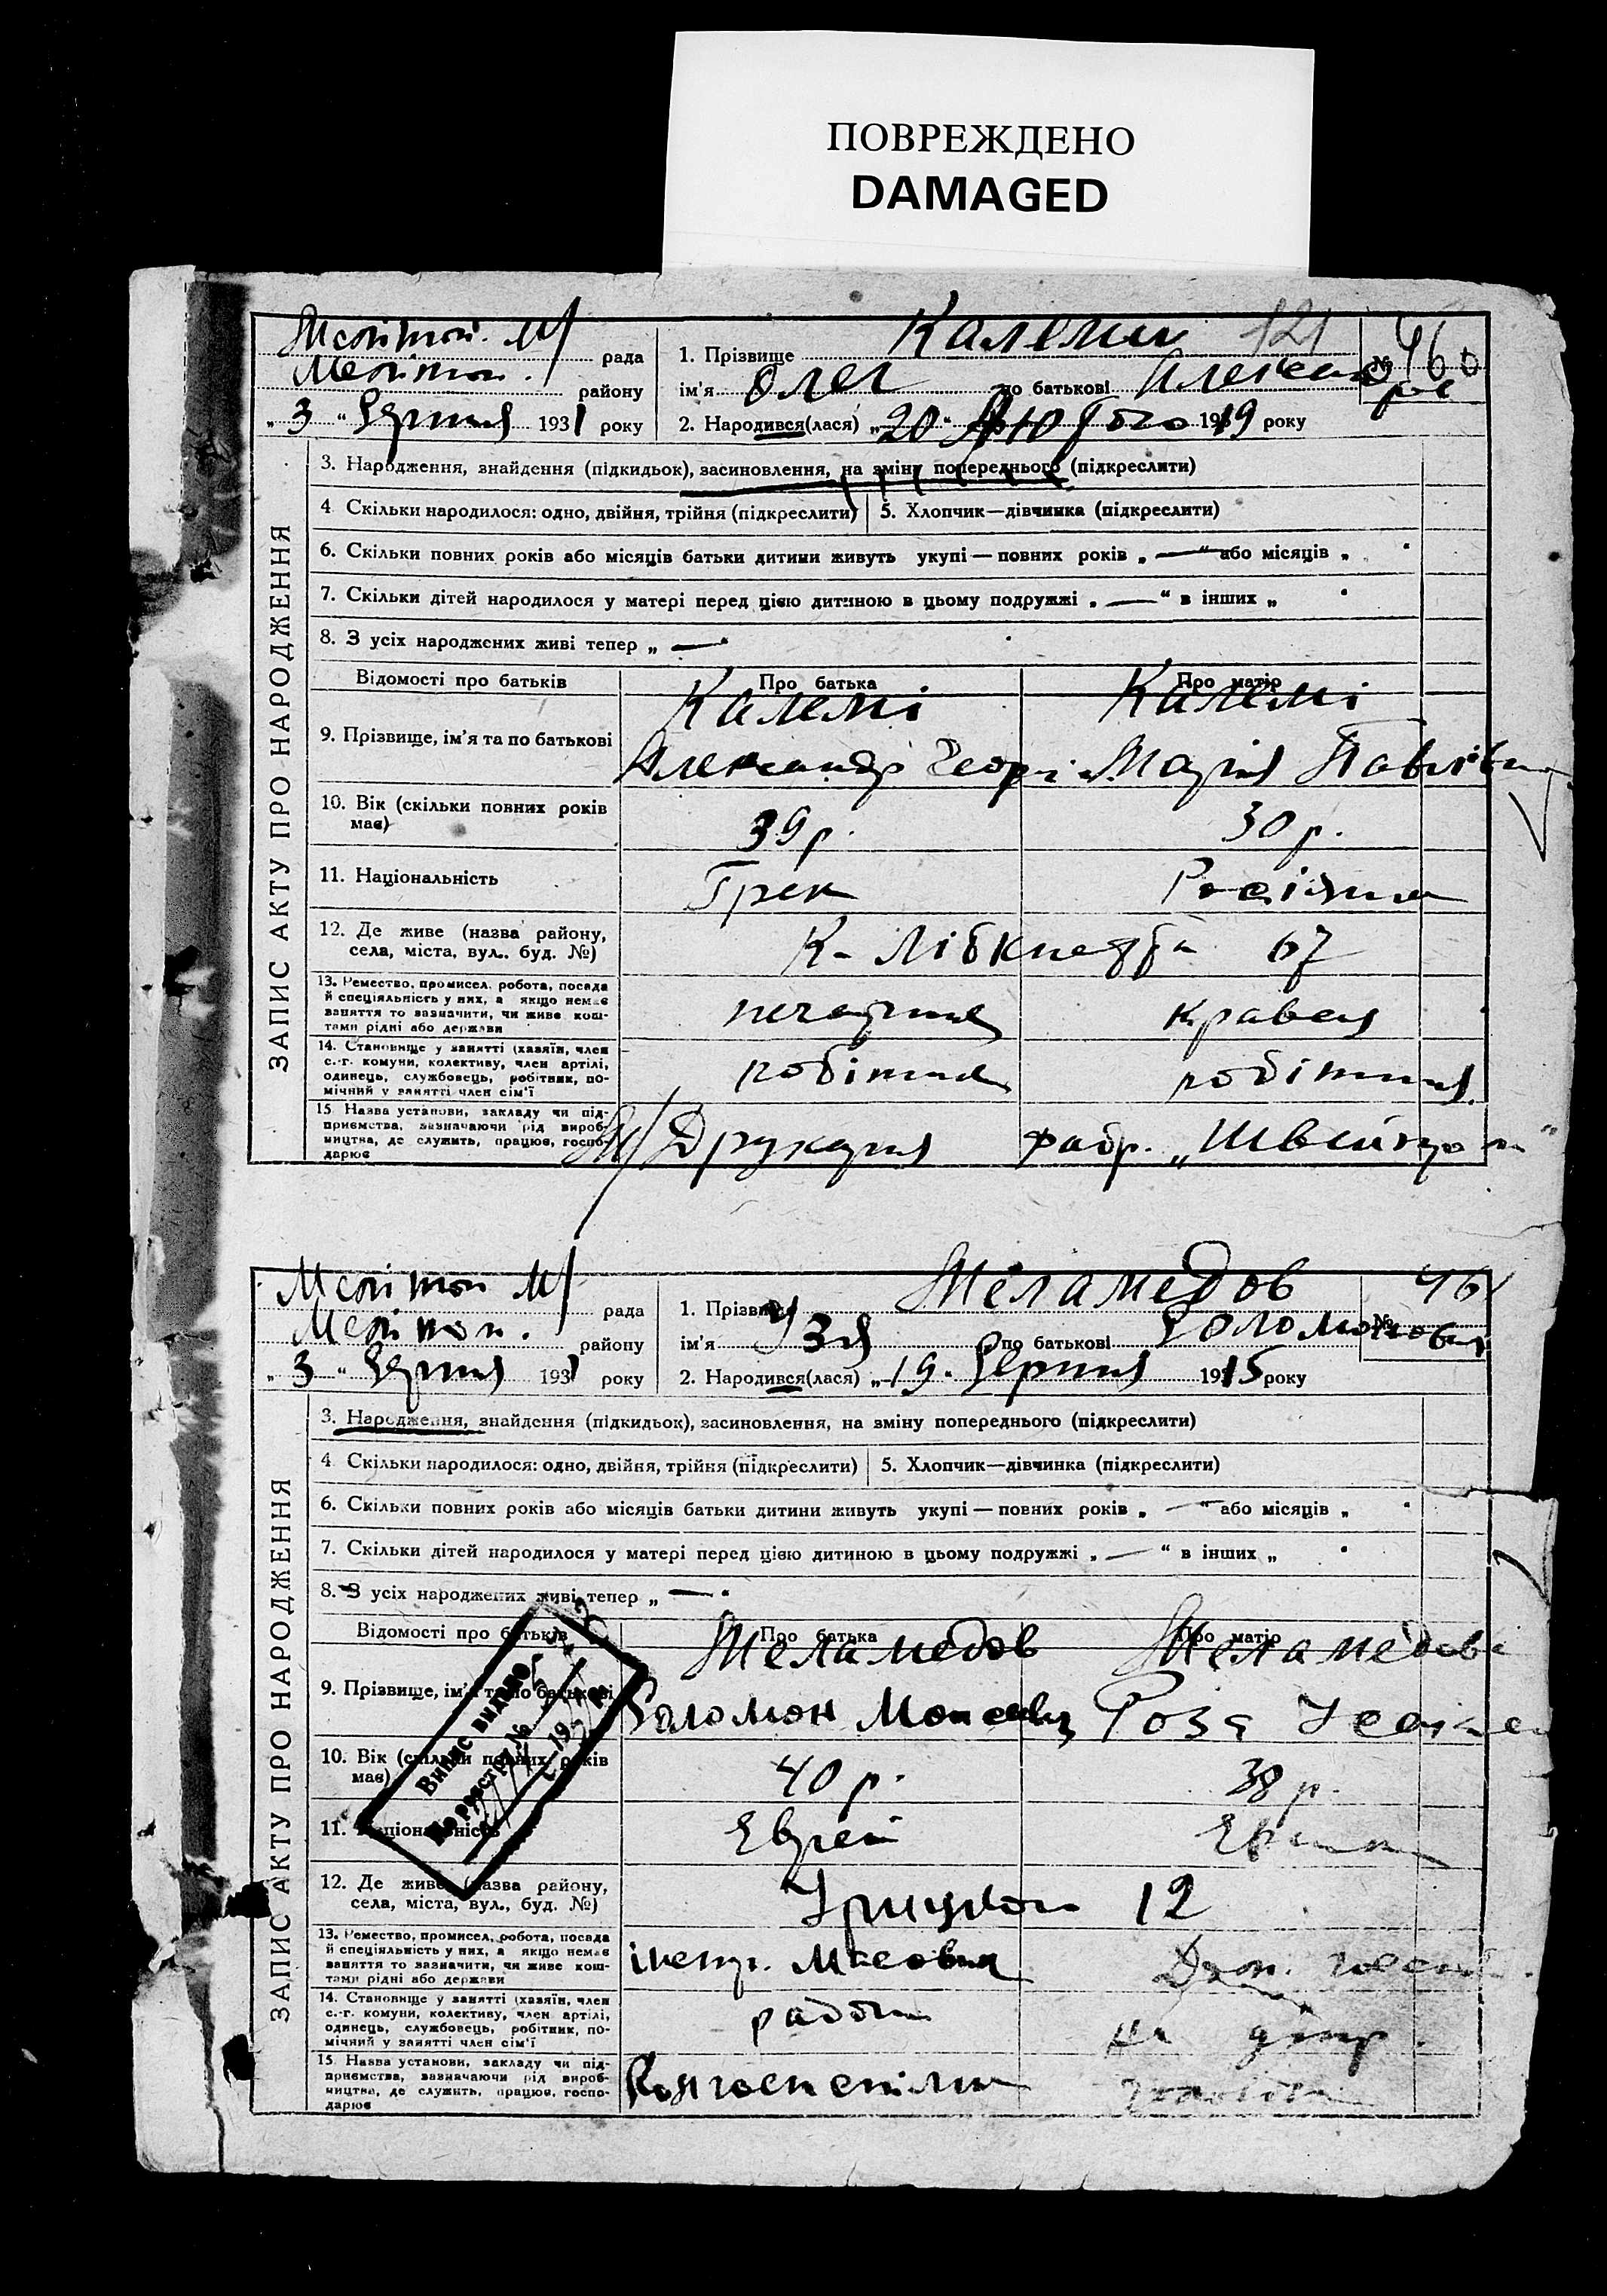 ПОВРЕЖДЕНО
DAMAGED
Меліт рада
Меліт району
„3“ Серпня 1931 року
1. Прізвище Калемі 121
№ 460
ім'я Олег по батькові Александр
2. Народився(лася) „20“ Лютого 1919 року
ЗАПИС АКТУ ПРО НАРОДЖЕННЯ
3. Народження, знайдення (підкидьок), засиновлення, на зміну попереднього (підкреслити)
4. Скільки народилося: одно, двійня, трійня (підкреслити) 5. Хлопчик—дівчинка (підкреслити)
6. Скільки повних років або місяців батьки дитини живуть укупі — повних років „—“ або місяців „
7. Скільки дітей народилося у матері перед цією дитиною в цьому подружжі „—“ в інших „
8. З усіх народжених живі тепер „—“
Відомості про батьків Про батька Про матір
9. Прізвище, ім'я та по батькові
Калемі Калемі
Александр Георгі Марія Павлівна
10. Вік (скільки повних років має) 39 р. 30 р.
11. Національність Грек Росіянка
12. Де живе (назва району, села, міста, вул., буд. №) К-Лібкнехта 67
13. Ремество, промисел, робота, посада й спеціяльність у них, а якщо немає заняття то зазначити, чи живе коштами рідні або держави печатник кравець
14. Становище у занятті (хазяїн, член с.-г. комуни, колективу, член артілі, одинець, службовець, робітник, помічний у занятті член сім'ї робітник робітниця
15. Назва установи, закладу чи підприємства, зазначаючи рід виробництва, де служить, працює, господарює Друкарня фабр. „Швейпром“
Меліт рада
Меліт району
„3“ Серпня 1931 року
1. Прізвище Меламедов
№ 461
ім'я Узя по батькові Соломонович
2. Народився(лася) „19“ Серпня 1915 року
ЗАПИС АКТУ ПРО НАРОДЖЕННЯ
3. Народження, знайдення (підкидьок), засиновлення, на зміну попереднього (підкреслити)
4. Скільки народилося: одно, двійня, трійня (підкреслити) 5. Хлопчик—дівчинка (підкреслити)
6. Скільки повних років або місяців батьки дитини живуть укупі — повних років „—“ або місяців „
7. Скільки дітей народилося у матері перед цією дитиною в цьому подружжі „—“ в інших „
8. З усіх народжених живі тепер „—“
Відомості про батьків Про батька Про матір
9. Прізвище, ім'я та по батькові
Меламедов Меламедова
Соломон Моисеевич Роза
Випис видано
По реєстру №
10. Вік (скільки повних років має) 40 р. 38 р.
11. Національність Еврей Еврейка
12. Де живе (назва району, села, міста, вул., буд. №) Урицкого 12
13. Ремество, промисел, робота, посада й спеціяльність у них, а якщо немає заняття то зазначити, чи живе коштами рідні або держави інстр. масовик Дом. хоз.
14. Становище у занятті (хазяїн, член с.-г. комуни, колективу, член артілі, одинець, службовець, робітник, помічний у занятті член сім'ї работн на
15. Назва установи, закладу чи підприємства, зазначаючи рід виробництва, де служить, працює, господарює Колгоспспілка